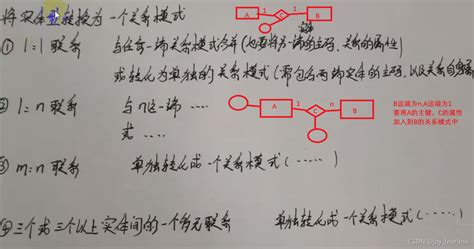 将实体型转换为一个关系模式
A 1 C 1 B
① 1:1 联系 与任意一端关系模式合并(也要将另一端的主码、关系的属性)
或转化为单独的关系模式(需包含两端实体的主码，以及关系自身属
② 1:n 联系 与n这一端……
A 1 C n B
式……
B这端为n,A这端为1
要将A的主键，C的属性
加入到B的关系模式中
③ m:n 联系 单独转化成一个关系模式(……)
④ 三个或三个以上实体间的一个多元联系 单独转化成一个关系模式(……)
CSDN @joy_fearless